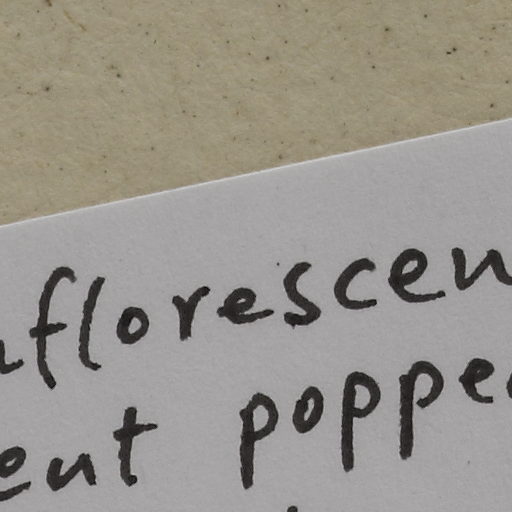 nflorescen
ent poppe